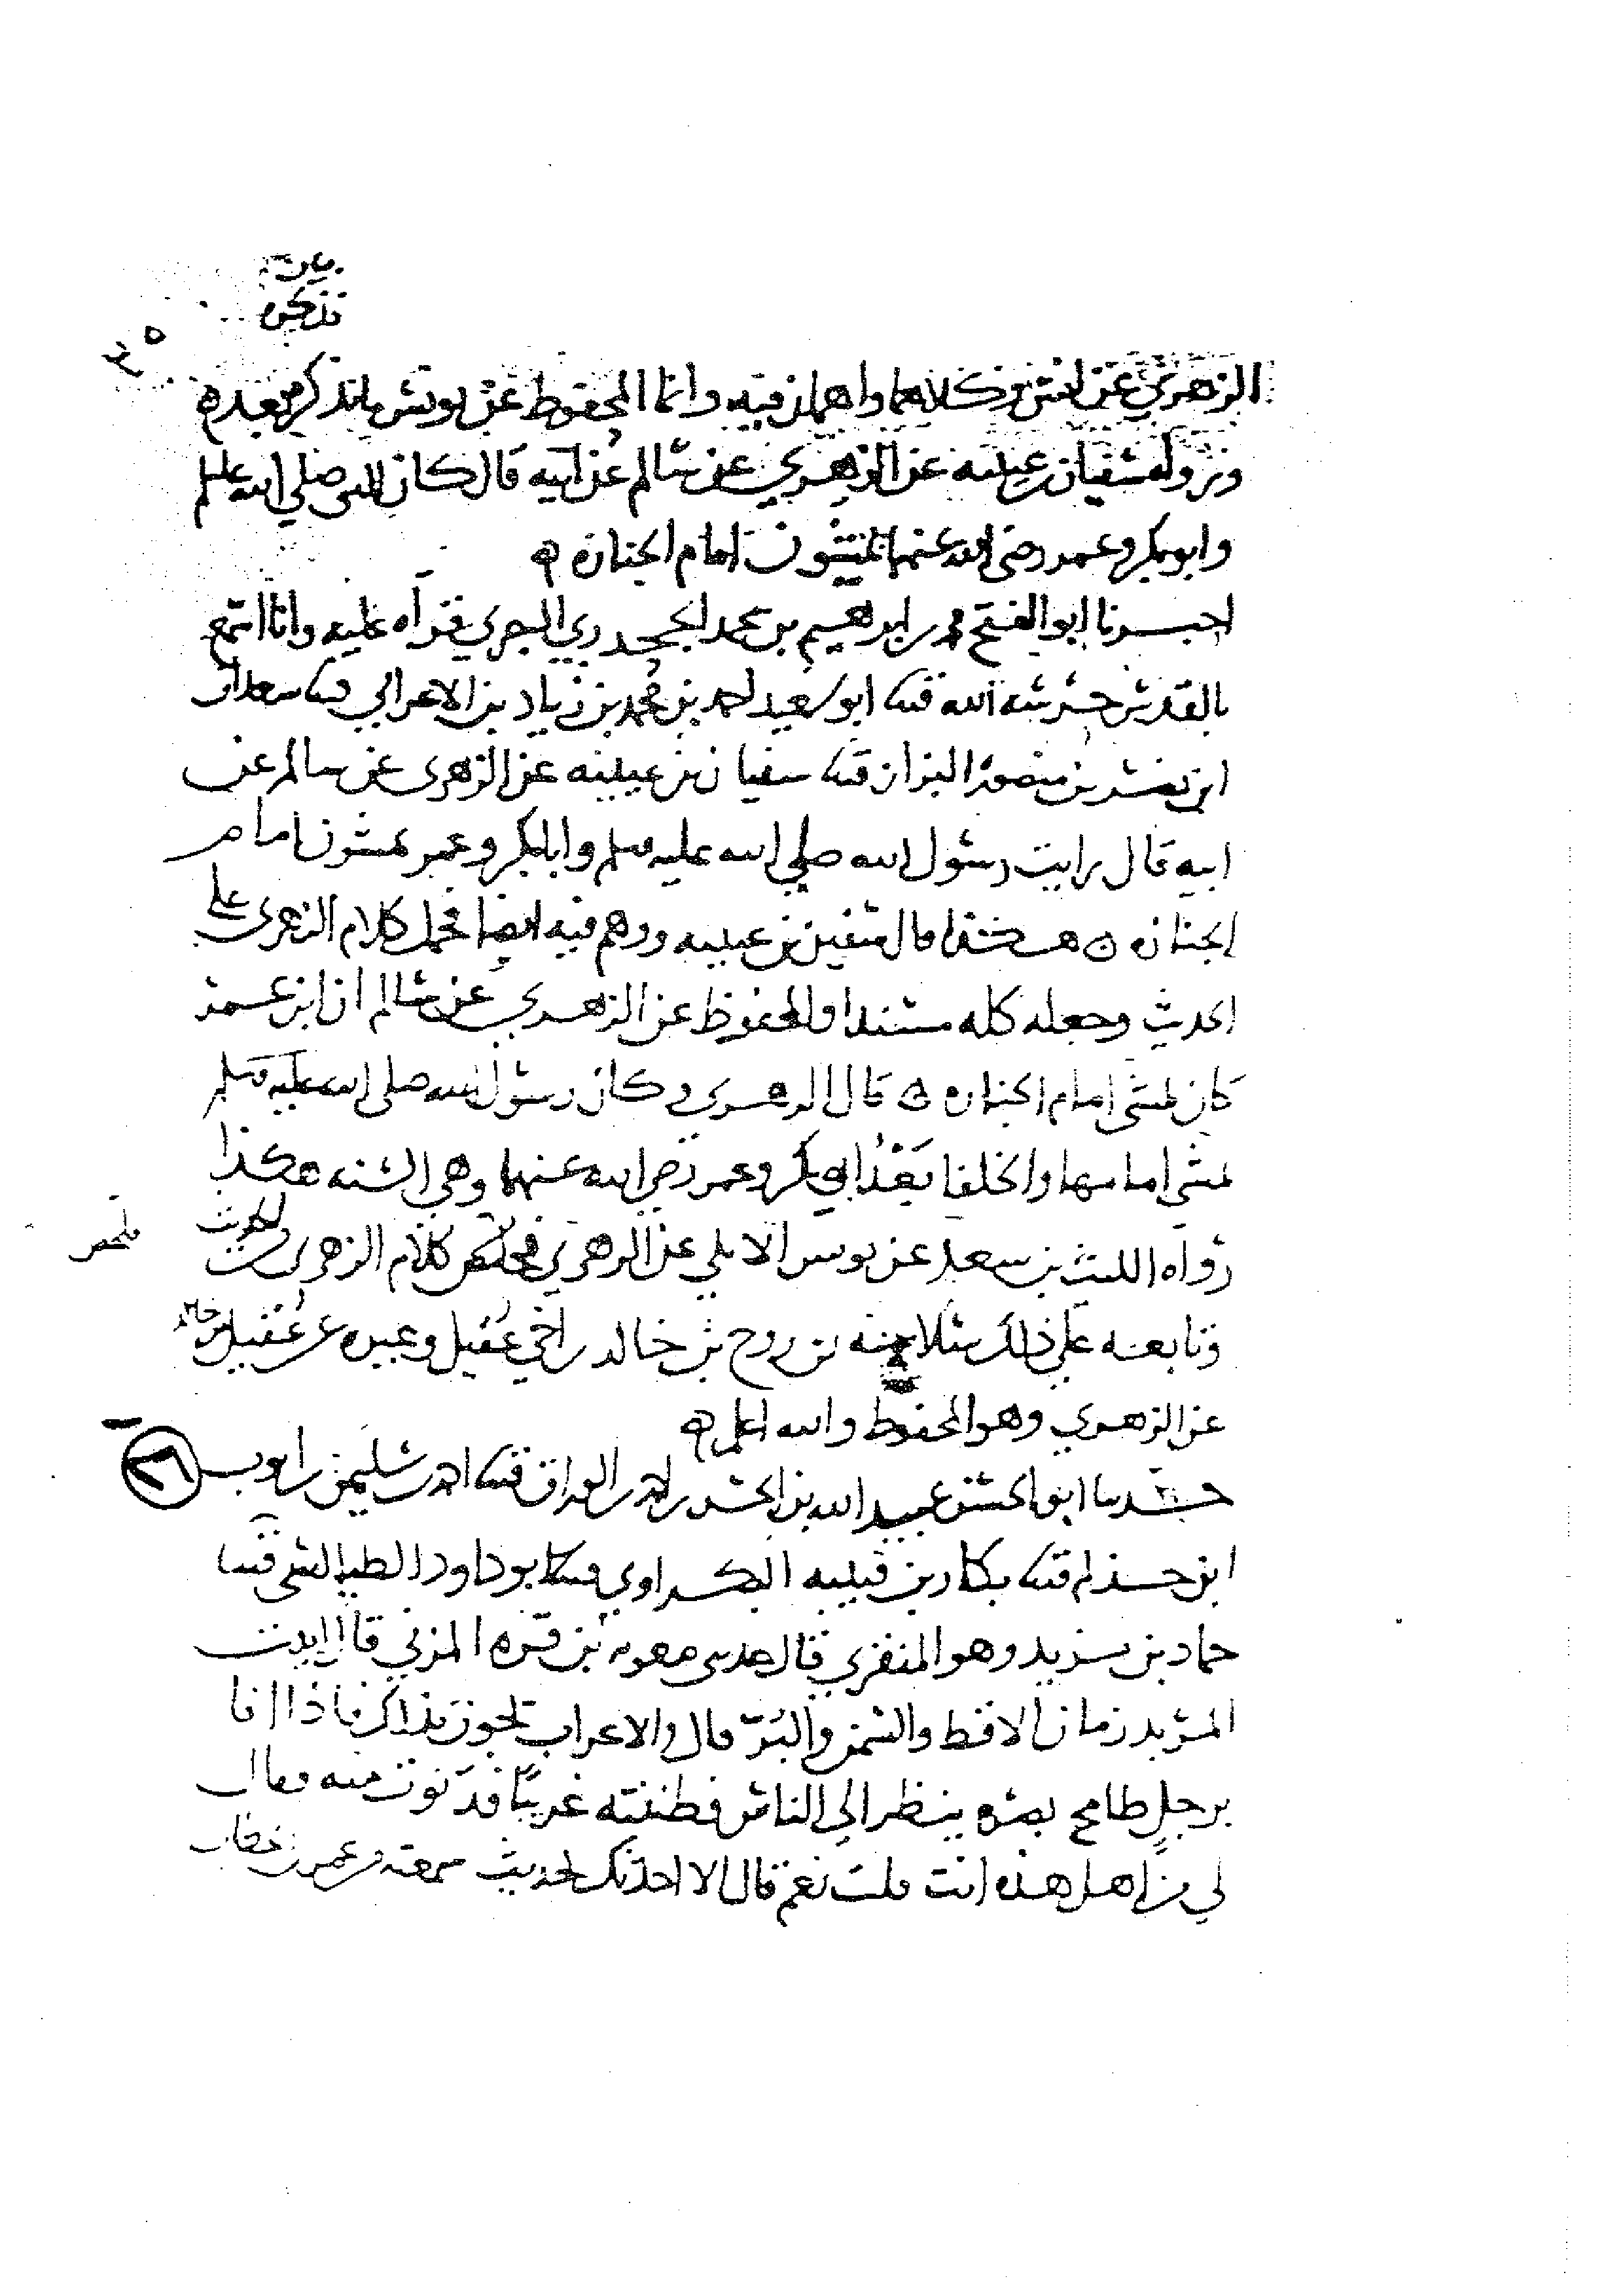 نذكره
الزهري عن انس وكلاهما واهمان فيه وانما المحفوظ عن يونس ما نذكره بعده
ورواه سفيان بن عيينه عن الزهري عن سالم عن ابيه قال كان النبي صلى الله عليه وسلم
وابو بكر وعمر رضى الله عنهما يمشون امام الجنازه ه
اخبرنا ابو الفتح محمد بن ابرهيم بن محمد الجحدري البصري قرآه عليه وانا اسمع
بالقدس حرسه الله قثنا ابو سعيد احمد بن محمد بن زياد بن الاعرابي قثنا سعدان
ابن نصر بن منصور البزاز قثنا سفيان بن عيينه عن الزهري عن سالم عن
ابيه قال رايت رسول الله صلي الله عليه وسلم وابا بكر وعمر يمشون امام
الجنازه ه هكذا قال سفين بن عيينه ووهم فيه ايضا فحمل كلام الزهري على
الحديث وجعله كله مسندا والمحفوظ عن الزهري عن سالم ان ابن عمر
كان يمشي امام الجنازه ه قال الزهري وكان رسول الله صلى الله عليه وسلم
يمشي امامها والخلفا بعد ابو بكر وعمر رضي الله عنهما وهي السنه هكذا
رواه الليث بن سعد عن يونس الايلي عن الزهري فخلص كلام الزهري والحديث
وتابعه على ذلك سلامه بن روح بن خالد بن اخي عقيل وغيره عن عقيل بن خالد
عن الزهري وهو المحفوظ والله اعلم ه
٢٦
حدثنا ابو الحسن عبيد الله بن الحسن بن احمد الوراق قثنا احمد بن سليمن بن ايوب
ابن حذلم قثنا بكار بن قتيبه البكراوي قثنا ابو داود الطيالسي قثنا
حماد بن يزيد وهو المنقري قال حدثني معويه بن قره المزني قال اتيت
المربد زمان الاقط والسمن والبر قال والاعراب تجوز بذاكر فاذا انا
برجل طامح بصره ينظر الى الناس فظننته غريبا فدنوت منه فقال
لي من اهل هذه انت قلت نعم قال الا احدثك بحديث سمعته من عمر بن خطاب